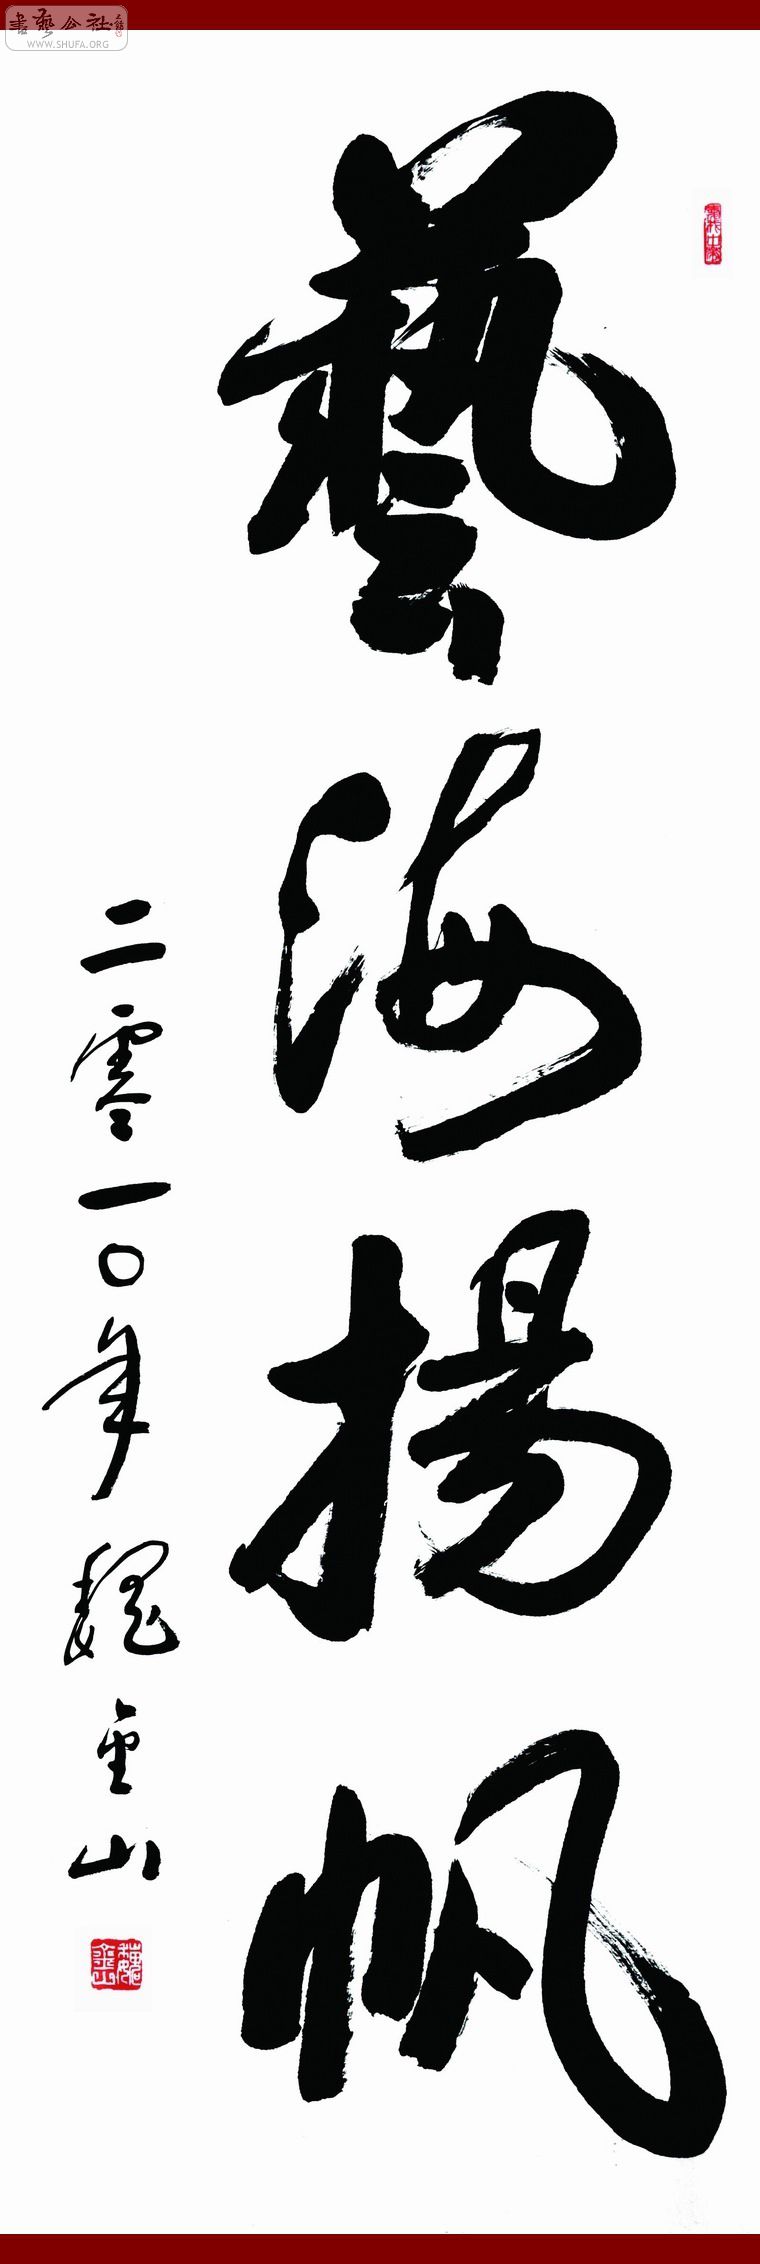 書藝公社
WWW.SHUFA.ORG
藝海揚帆
二零一〇年 魏金山
魏金山